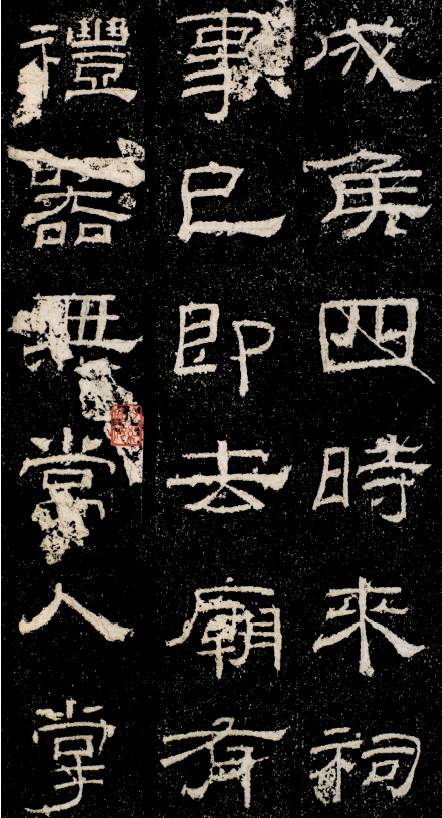 成矦四時來祠
事已即去廟有
禮器無常人掌